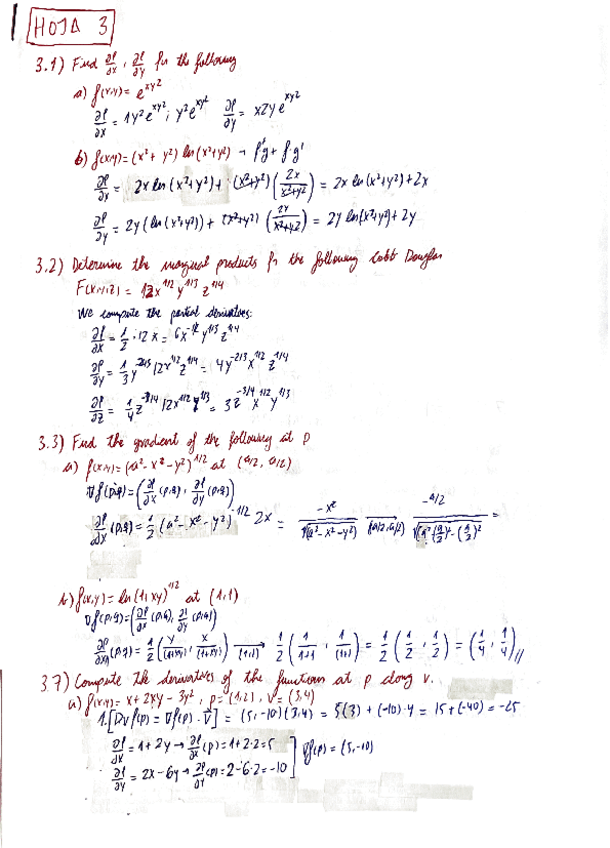 HOJA 3
3.1) Find ∂f/∂x, ∂f/∂y for the following
a) f(x,y) = e^xy²
∂f/∂x = 1y²e^xy²; y²e^xy² ∂f/∂y = x2y e^xy²
b) f(x,y) = (x² + y²) ln (x²+y²) → f'g + f·g'
∂f/∂x = 2x ln (x²+y²) + (x²+y²) (2x/x²+y²) = 2x ln (x²+y²) + 2x
∂f/∂y = 2y (ln (x²+y²)) + (x²+y²) (2y/x²+y²) = 2y ln(x²+y²) + 2y
3.2) Determine the marginal products for the following Cobb Douglas
F(x,y,z) = 12x^1/2 y^1/3 z^1/4
We compute the partial derivatives:
∂f/∂x = 1/2 · 12 x = 6x^-1/2 y^1/3 z^1/4
∂f/∂y = 1/3 y^-2/3 12x^1/2 z^1/4 = 4y^-2/3 x^1/2 z^1/4
∂f/∂z = 1/4 z^-3/4 12x^1/2 y^1/3 = 3z^-3/4 x^1/2 y^1/3
3.3) Find the gradient of the following at p
a) f(x,y) = (a² - x² - y²)^1/2 at (a/2, a/2)
∇f(p,q) = (∂f/∂x (p,q), ∂f/∂y (p,q))
∂f/∂x (p,q) = 1/2 (a² - x² - y²)^-1/2 2x = -x/√(a² - x² - y²) →(a/2, a/2) -a/2/√(a² - (a/2)² - (a/2)²) =
b) f(x,y) = ln (1+xy)^1/2 at (1,1)
∇f(p,q) = (∂f/∂x (p,q), ∂f/∂y (p,q))
(p,q) = 1/2 (y/(1+xy), x/(1+xy)) →(1,1) 1/2 (1/1+1, 1/(1+1)) = 1/2 (1/2, 1/2) = (1/4, 1/4)//
3.7) Compute the derivatives of the functions at p along v.
a) f(x,y) = x + 2xy - 3y², p = (1,2), v = (3,4)
1. [Dvf(p) = ∇f(p) · v⃗] = (5,-10)(3,4) = 5(3) + (-10)·4 = 15 + (-40) = -25
∂f/∂x = 1 + 2y → ∂f/∂x (p) = 1+2·2 = 5 ] ∇f(p) = (5,-10)
∂f/∂y = 2x - 6y → ∂f/∂y (p) = 2 - 6·2 = -10